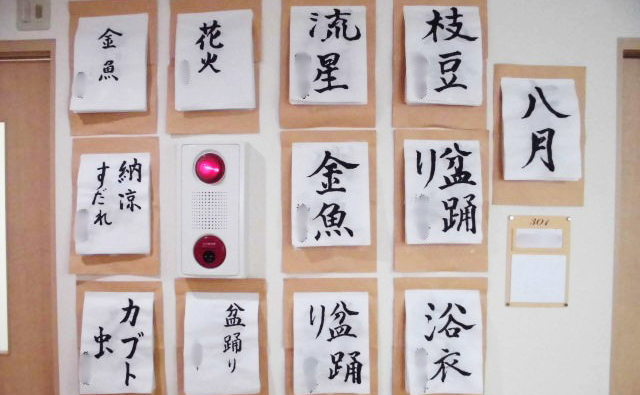 八月
枝豆
流星
花火
金魚
盆踊
り
金魚
納涼
すだれ
浴衣
盆踊
り
盆踊り
カブト
虫
301